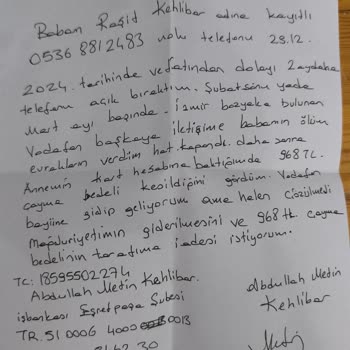 Babam Raşit Kehlibar adına kayıtlı
0536 8812483 nolu telefonu 28.12.
2024 tarihinde vefatından dolayı 2 ayda
telefonu açık bıraktım. Şubat sonu yada
Mart ayı başında. İzmir bozyaka bulunan
Vodafon başkaya iletişime babamın ölüm
evraklarını verdim hat kapandı. daha sonra
Annemin kart hesabına baktığımda 968 TL.
cayma bedeli kesildiğini gördüm. Vodafon
bayiine gidip geliyorum ama halen çözülmedi
Mağduriyetimin giderilmesini ve 968 tl. cayma
bedelinin tarafıma iadesi istiyorum.
TC: 18595502274
Abdullah Metin Kehlibar.
işbankası Eşrefpaşa Şubesi
TR. 51 0006 4000 0013
42 30
Abdullah Metin
Kehlibar